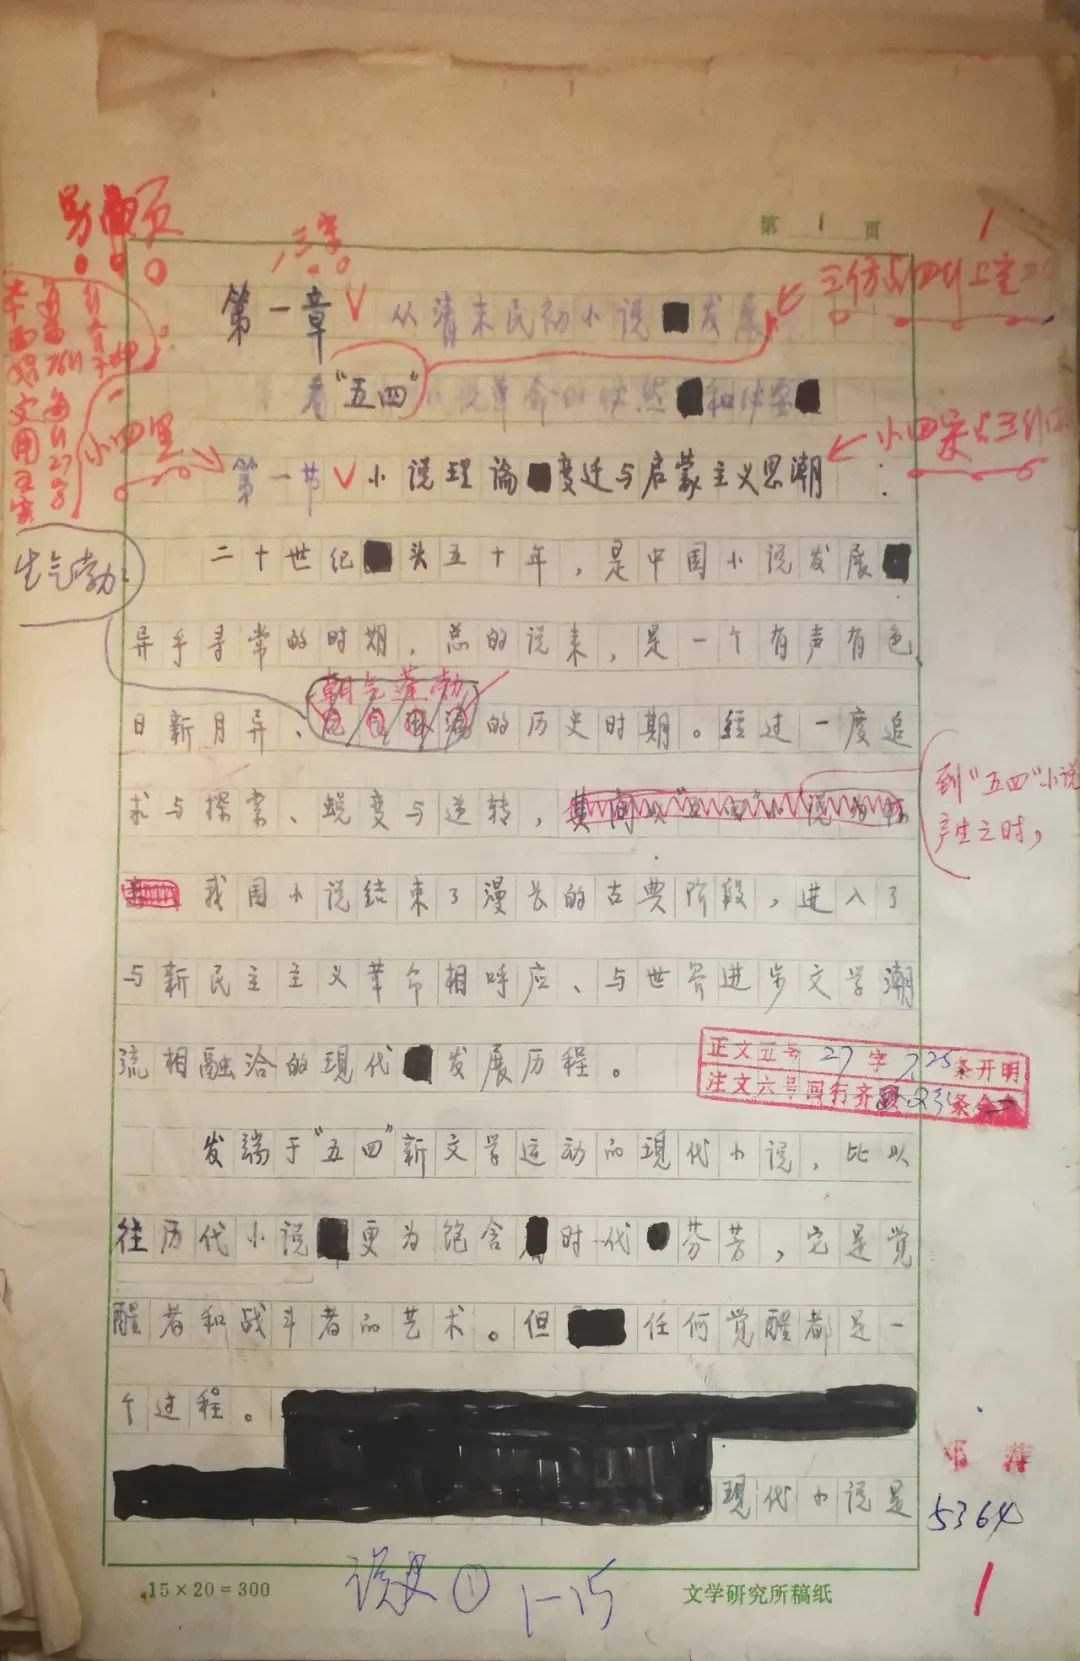 第 1 页
1
另面页
三字
第一章 从清末民初小说 发展
看"五四"小说革命的必然 和必要
第一节 小说理论 变迁与启蒙主义思潮
小四黑
小四宋占三行
二十世纪 头五十年，是中国小说发展
生气勃
异乎寻常的时期，总的说来，是一个有声有色、
朝气蓬勃
日新月异、 的历史时期。经过一度追
求与探索、蜕变与逆转，其间以"五四"小说为转
到"五四"小说
产生之时，
我国小说结束了漫长的古典阶段，进入了
与新民主主义革命相呼应、与世界进步文学潮
流相融洽的现代 发展历程。
正文五号 27字 25条开明
注文六号同行齐 条
发端于"五四"新文学运动的现代小说，比以
往历代小说 更为饱含 时代 芬芳，它是觉
醒者和战斗者的艺术。但 任何觉醒都是一
个过程。
现代小说是
邓 萍
5364
1
15×20=300
说史① 1-15
文学研究所稿纸